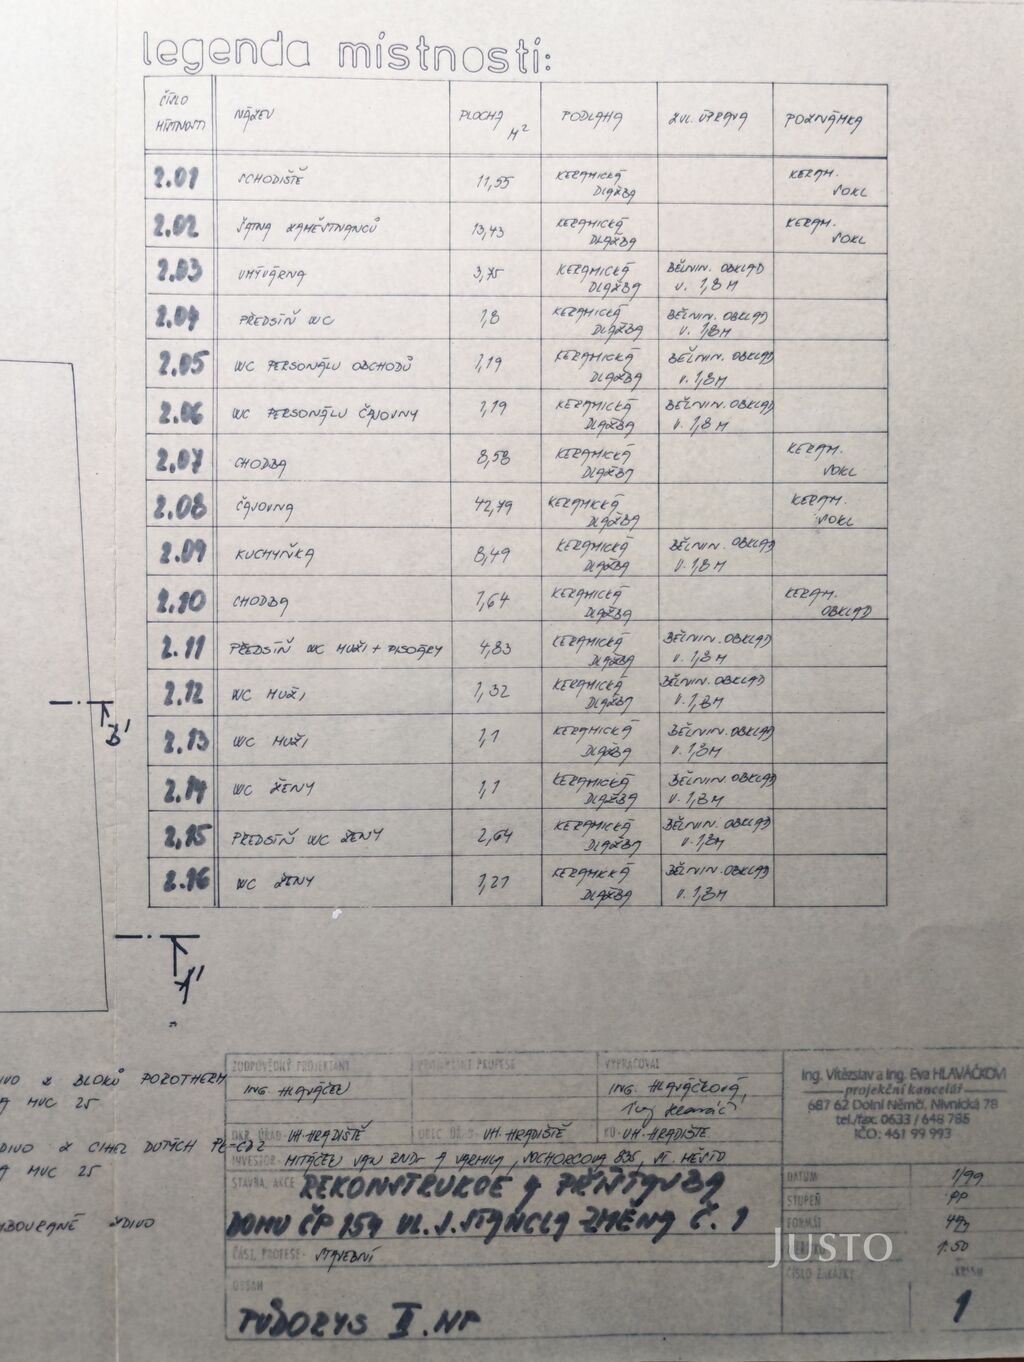 legenda místností:
ČÍSLO MÍSTNOSTI NÁZEV PLOCHA M² PODLAHA ZVL. ÚPRAVA POZNÁMKA
2.01 SCHODIŠTĚ 11,55 KERAMICKÁ DLAŽBA KERAM. SOKL
2.02 ŠATNA ZAMĚSTNANCŮ 13,43 KERAMICKÁ DLAŽBA KERAM. SOKL
2.03 UMÝVÁRNA 3,75 KERAMICKÁ DLAŽBA BĚLNIN. OBKLAD V. 1,8 M
2.04 PŘEDSÍŇ WC 1,8 KERAMICKÁ DLAŽBA BĚLNIN. OBKLAD V. 1,8 M
2.05 WC PERSONÁLU OBCHODŮ 1,19 KERAMICKÁ DLAŽBA BĚLNIN. OBKLAD V. 1,8 M
2.06 WC PERSONÁLU ČAJOVNY 1,19 KERAMICKÁ DLAŽBA BĚLNIN. OBKLAD V. 1,8 M
2.07 CHODBA 8,58 KERAMICKÁ DLAŽBA KERAM. SOKL
2.08 ČAJOVNA 42,79 KERAMICKÁ DLAŽBA KERAM. SOKL
2.09 KUCHYŇKA 8,49 KERAMICKÁ DLAŽBA BĚLNIN. OBKLAD V. 1,8 M
2.10 CHODBA 1,64 KERAMICKÁ DLAŽBA KERAM. OBKLAD
2.11 PŘEDSÍŇ WC MUŽI + PISOÁRY 4,83 KERAMICKÁ DLAŽBA BĚLNIN. OBKLAD V. 1,8 M
2.12 WC MUŽI 1,32 KERAMICKÁ DLAŽBA BĚLNIN. OBKLAD V. 1,8 M
2.13 WC MUŽI 1,1 KERAMICKÁ DLAŽBA BĚLNIN. OBKLAD V. 1,8 M
2.14 WC ŽENY 1,1 KERAMICKÁ DLAŽBA BĚLNIN. OBKLAD V. 1,8 M
2.15 PŘEDSÍŇ WC ŽENY 2,64 KERAMICKÁ DLAŽBA BĚLNIN. OBKLAD V. 1,8 M
2.16 WC ŽENY 1,21 KERAMICKÁ DLAŽBA BĚLNIN. OBKLAD V. 1,8 M
B'
A'
IVO Z BLOKŮ POROTHERM
A MVC 25
DIVO Z CIHEL DUTÝCH
A MVC 25
BOURANÉ ZDIVO
ZODPOVĚDNÝ PROJEKTANT PROFESE VYPRACOVAL
ING. HLAVÁČEK ING. HLAVÁČKOVÁ,
Ing Hlaváč
OKR. ÚŘAD - UH. HRADIŠTĚ UH. HRADIŠTĚ KÚ - UH. HRADIŠTĚ
INVESTOR - SOCHORCOVA 835, ST. MĚSTO
STAVBA, AKCE REKONSTRUKCE A PŘÍSTAVBA
DOMU ČP 154 UL. J. STANCLA ZMĚNA Č. 1
ČÁST, PROFESE - STAVEBNÍ
OBSAH
PŮDORYS II. NP
Ing. Vítězslav a Ing. Eva HLAVÁČKOVI
projekční kancelář
687 62 Dolní Němčí, Nivnická 78
tel./fax: 0633 / 648 785
IČO: 461 99 993
DATUM 1/99
STUPEŇ PP
FORMÁT
1:50
ČÍSLO ZAKÁZKY
1
JUSTO